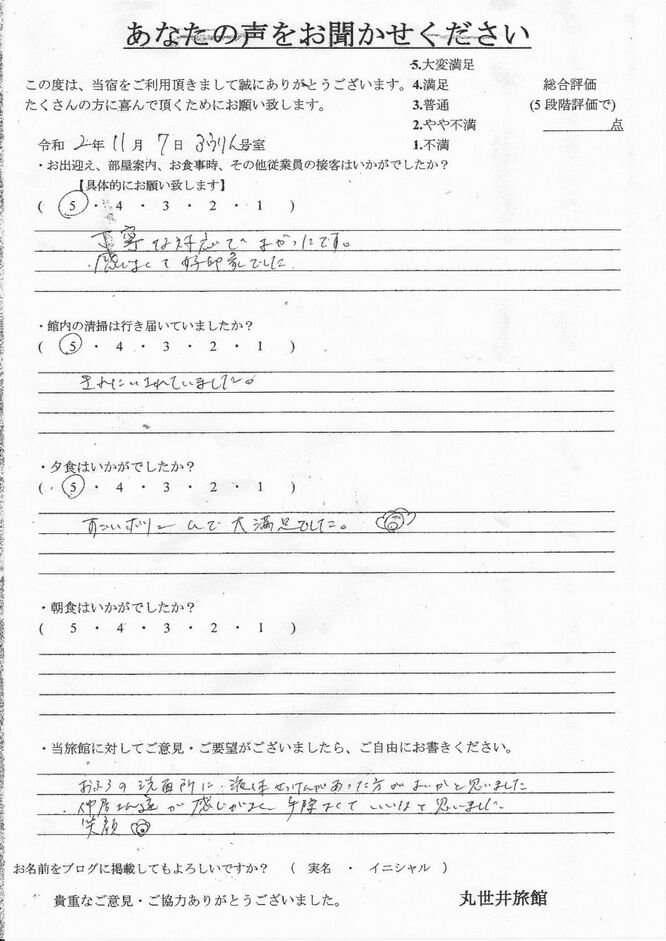 あなたの声をお聞かせください
この度は、当宿をご利用頂きまして誠にありがとうございます。
たくさんの方に喜んで頂くためにお願い致します。
5.大変満足
4.満足
3.普通
2.やや不満
1.不満
総合評価
(5段階評価で)
点
令和 2年 11月 7日 ふうりん号室
・お出迎え、部屋案内、お食事時、その他従業員の接客はいかがでしたか?
【具体的にお願い致します】
( 5 ・ 4 ・ 3 ・ 2 ・ 1 )
丁寧な対応でよかったです。
感じよくて好印象でした
・館内の清掃は行き届いていましたか?
( 5 ・ 4 ・ 3 ・ 2 ・ 1 )
されていました。
・夕食はいかがでしたか?
( 5 ・ 4 ・ 3 ・ 2 ・ 1 )
すごいボリュームで大満足でした。
・朝食はいかがでしたか?
( 5 ・ 4 ・ 3 ・ 2 ・ 1 )
・当旅館に対してご意見・ご要望がございましたら、ご自由にお書きください。
おふろの洗面所に、液体せっけんがあった方がよいかと思いました
仲居さん達が感じがよく、手際よくていいなと思いました
笑顔
お名前をブログに掲載してもよろしいですか? ( 実名 ・ イニシャル )
貴重なご意見・ご協力ありがとうございました。
丸世井旅館